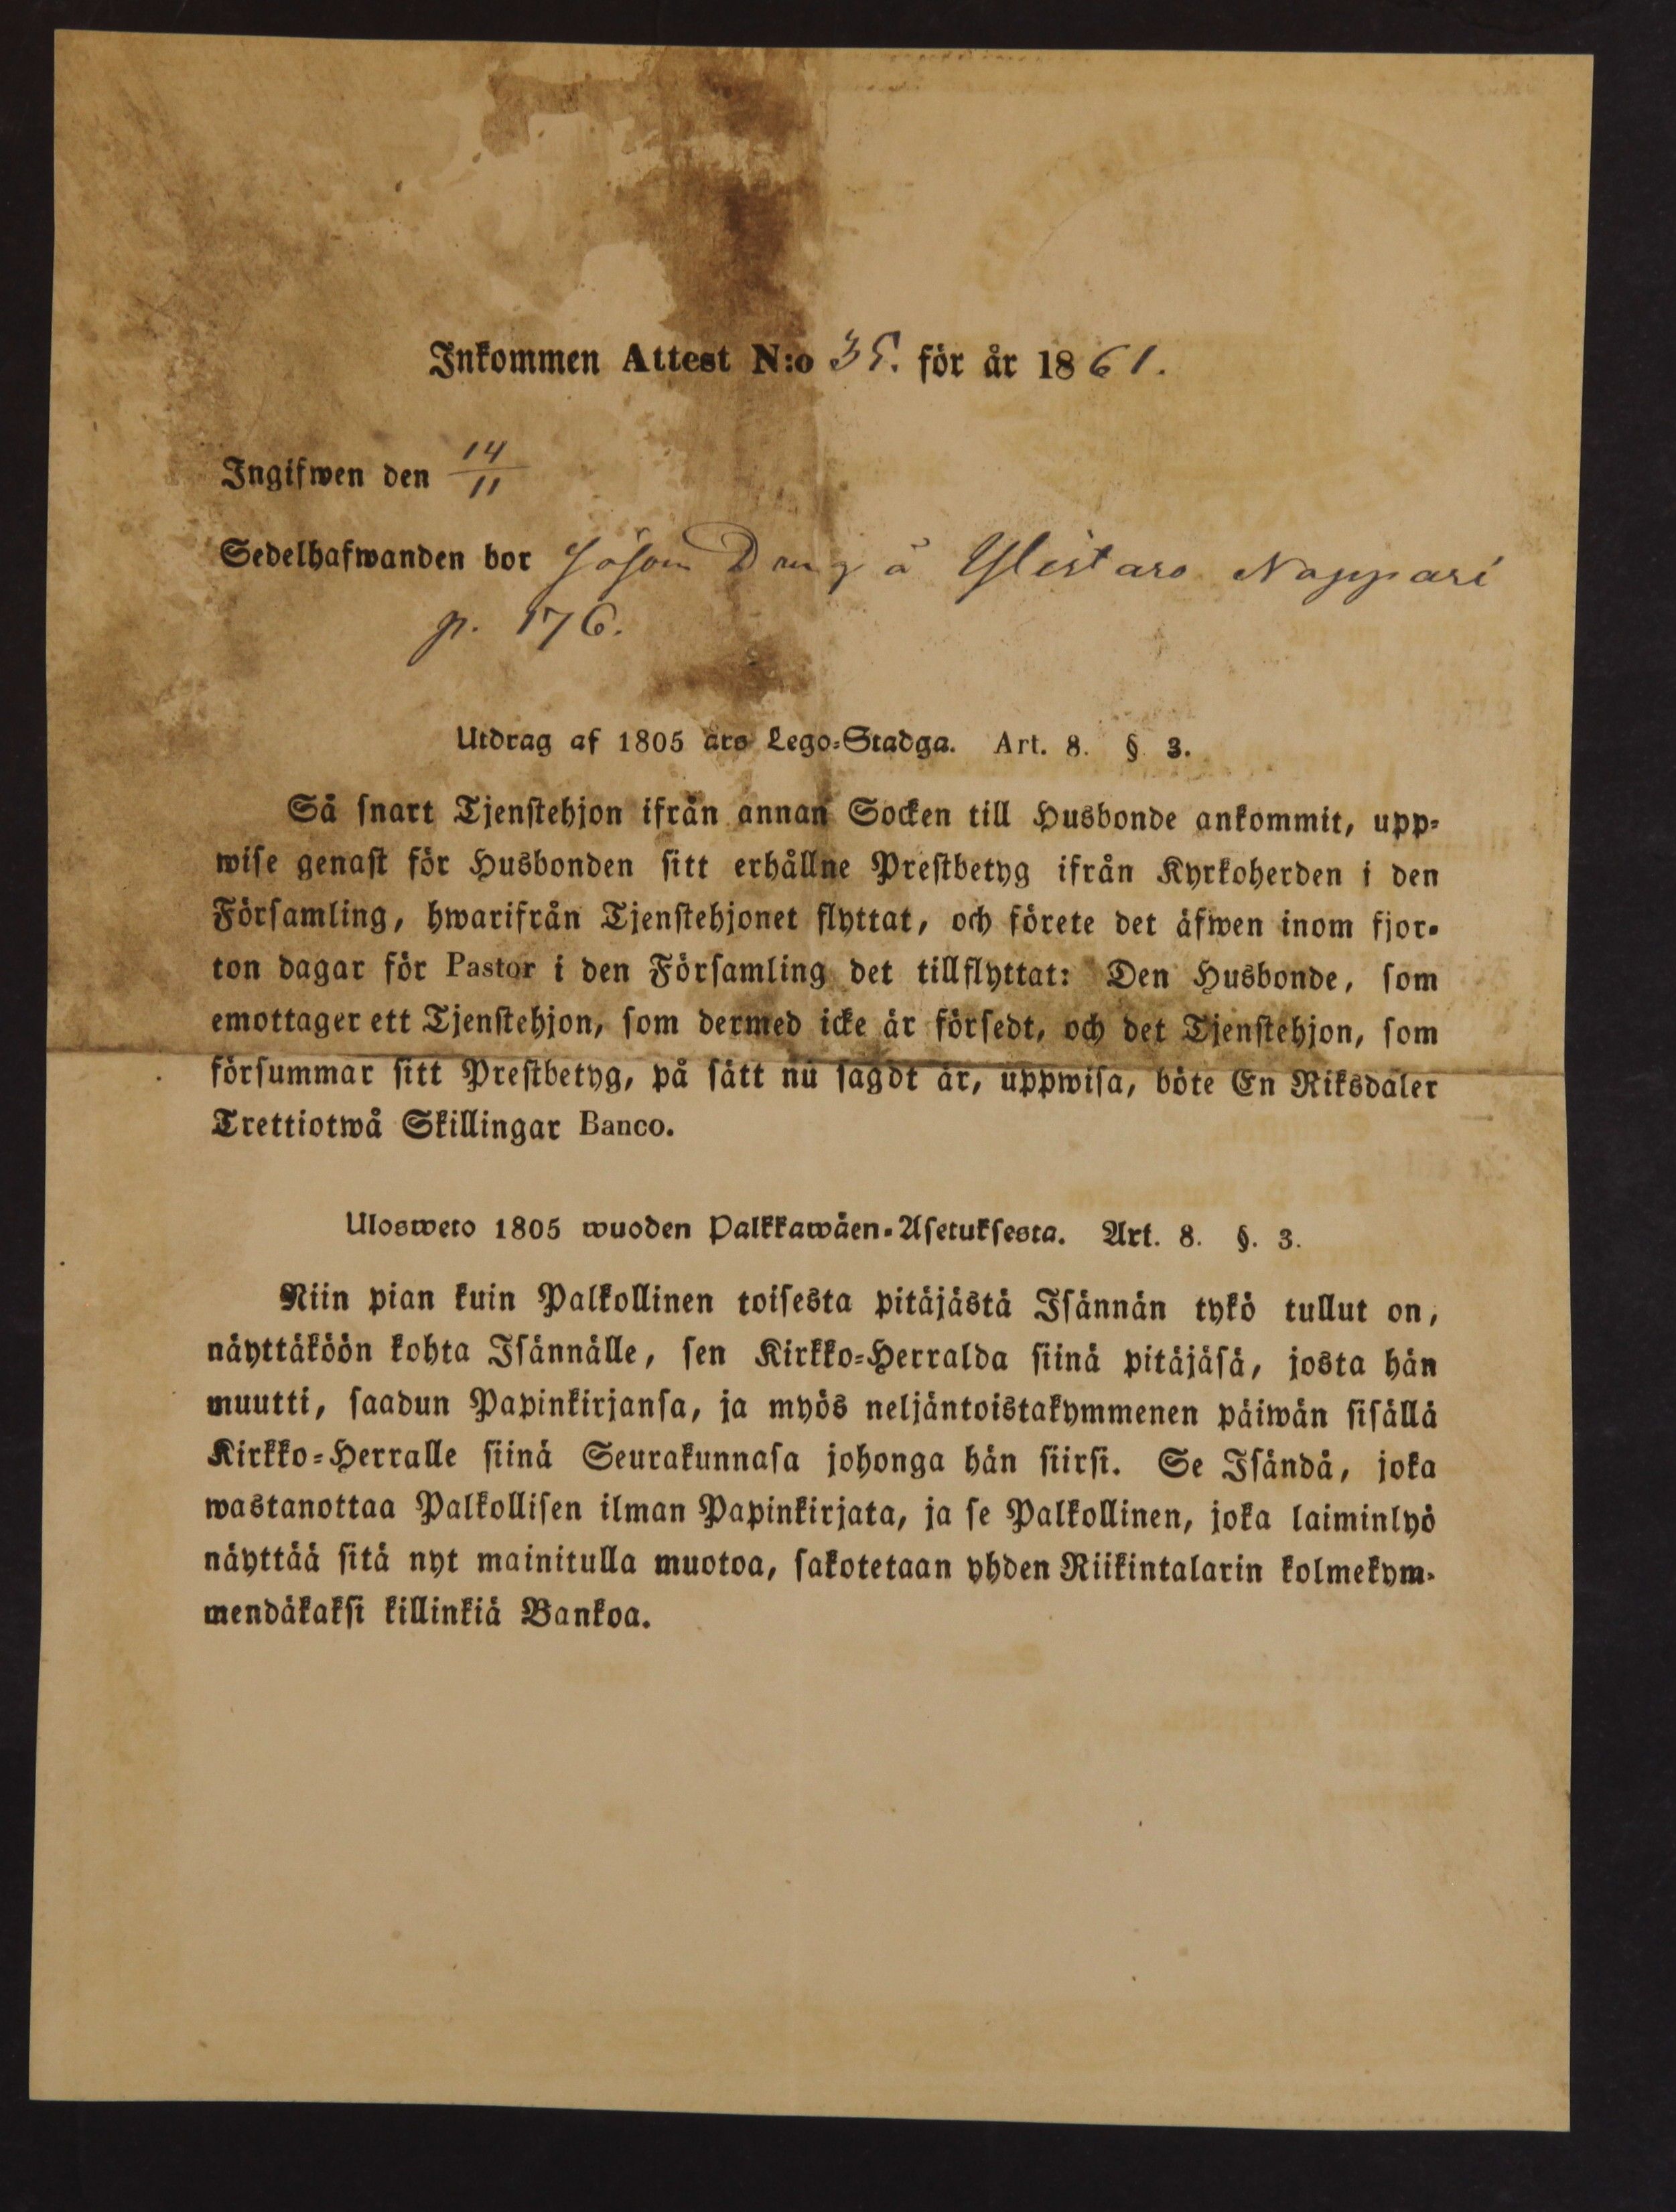 Inkommen Attest N:o 35. för år 1861.
Ingifwen den 14/11
Sedelhafwanden bor såsom Dräng å Ylistaro Nappari
p. 176.
Utdrag af 1805 års Lego-Stadga. Art. 8. § 3.
Så snart Tjenstehjon ifrån annan Socken till Husbonde ankommit, upp-
wise genast för Husbonden sitt erhållne Prestbetyg ifrån Kyrkoherden i den
Församling, hwarifrån Tjenstehjonet flyttat, och förete det äfwen inom fjor-
ton dagar för Pastor i den Församling det tillflyttat: Den Husbonde, som
emottager ett Tjenstehjon, som dermed icke är försedt, och det Tjenstehjon, som
försummar sitt Prestbetyg, på sätt nu sagdt är, uppwisa, böte En Riksdaler
Trettiotwå Skillingar Banco.
Ulosweto 1805 wuoden Palkkawäen-Asetuksesta. Art. 8. §. 3.
Niin pian kuin Palkollinen toisesta pitäjästä Isännän tykö tullut on,
näyttäköön kohta Isännälle, sen Kirkko-Herralda siinä pitäjäsä, josta hän
muutti, saadun Papinkirjansa, ja myös neljäntoistakymmenen päiwän sisällä
Kirkko-Herralle siinä Seurakunnasa johonga hän siirsi. Se Isändä, joka
wastanottaa Palkollisen ilman Papinkirjata, ja se Palkollinen, joka laiminlyö
näyttää sitä nyt mainitulla muotoa, sakotetaan yhden Riikintalarin kolmekym-
mendäkaksi killinkiä Bankoa.